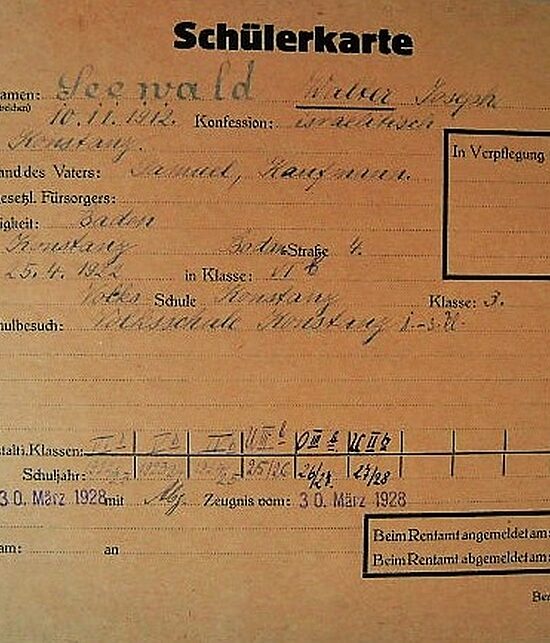 Schülerkarte
amen: Seewald Walter Joseph
10. 11. 1912. Konfession: israelitisch
Konstanz.
and des Vaters: Samuel, Kaufmann.
In Verpflegung
esetzl. Fürsorgers:
igkeit: Baden
Konstanz Baden Straße 4.
25. 4. 1922 in Klasse: VI b
Volks Schule Konstanz Klasse: 3.
hulbesuch: Volksschule Konstanz 1-3. Kl.
stalt i. Klassen: U III b O III b U II b
Schuljahr: 25/26 26/27. 27/28
30. März 1928 mit Abg. Zeugnis vom: 30. März 1928
Beim Rentamt angemeldet am:
am: an
Beim Rentamt abgemeldet am:
Be